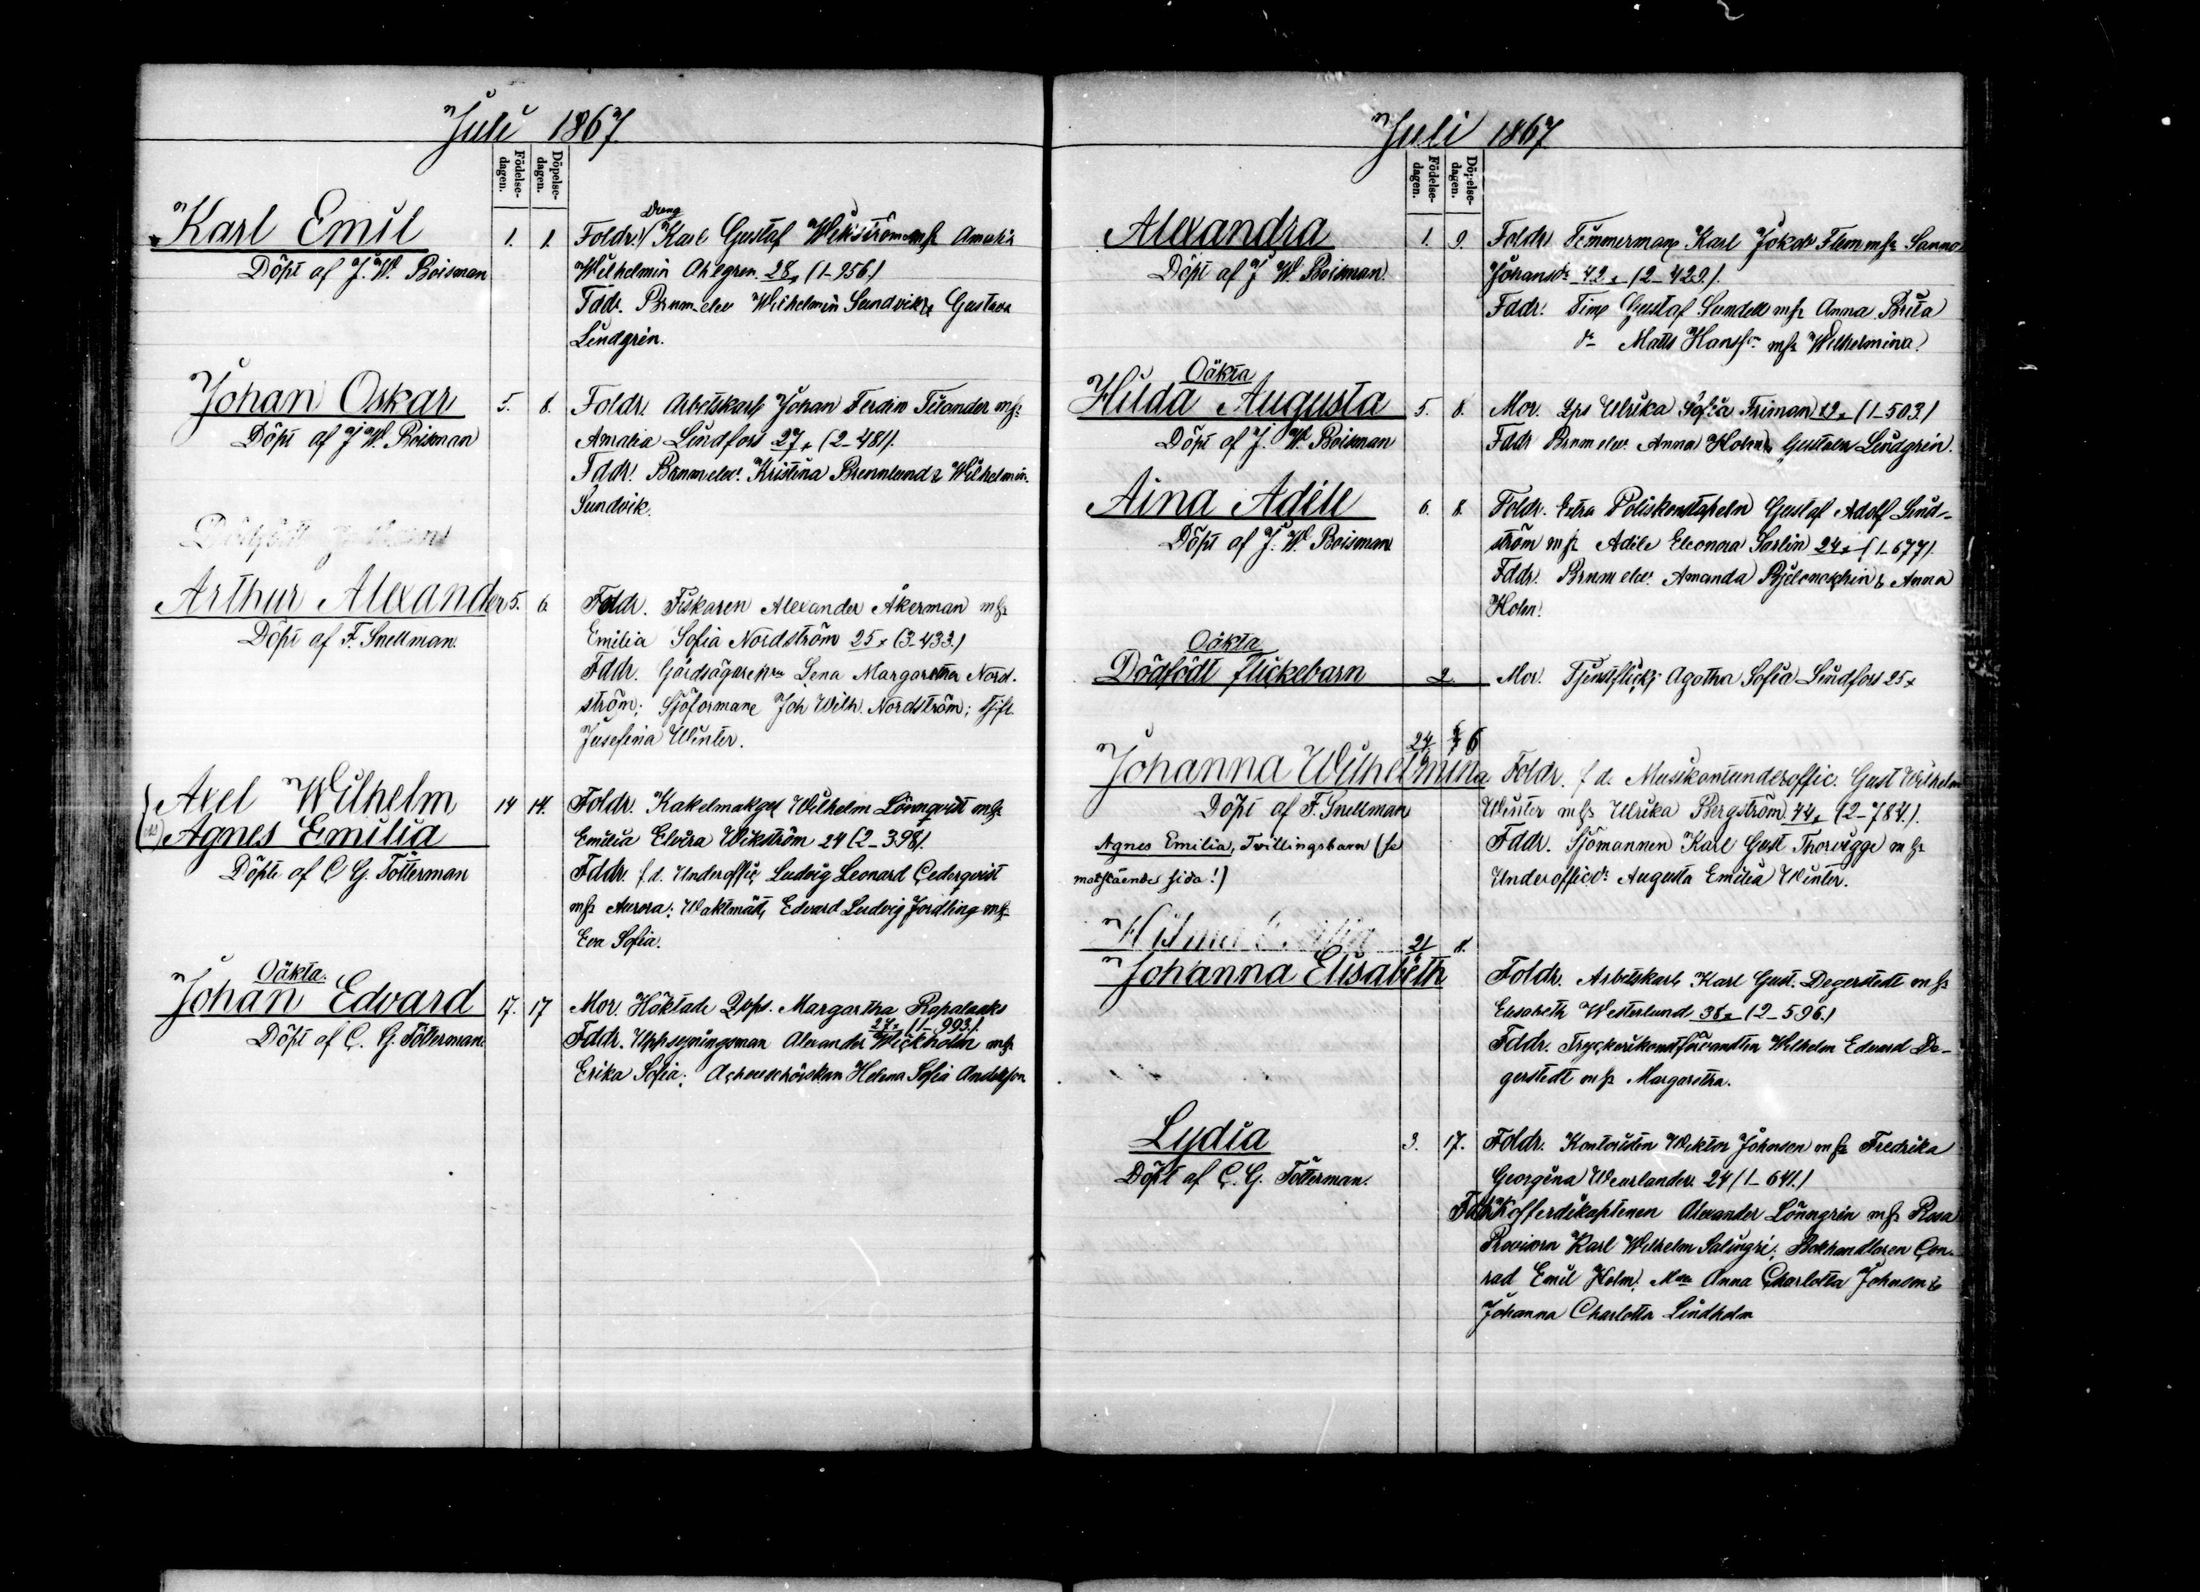 Juli 1867.
Födelse-dagen.
Döpelse-dagen.
Karl Emil
1. 1.
Döpt af J. W. Boisman
Dreng
Foldr. Karl Gustaf Wikström mh Amalia
Wilhelmin Ahlgren 28 (1-956.)
Fddr. Brnm elev Wilhelmin Sundvik & Gustava
Lindgrin.
Johan Oskar
5. 8.
Döpt af J. W. Boisman
Foldr. Arbetskarl Johan Ferdin Telander mh
Amalia Lindfors 27 (2-481).
Fddr. Brnm elev. Kristina Brennlund & Wilhelmin
Sundvik.
Arthur Alexander
5. 6
Döpt af F. Snellman.
Foldr. Fiskaren Alexander Åkerman mh
Emilia Sofia Nordström 25 (3-433)
Fddr. Gårdsägare Lena Margaretha Nord-
ström; Sjöformane Joh Wilh. Nordström;
Josefina Winter.
Axel Wilhelm
Agnes Emilia
14 14.
Döpte af C G. Totterman
Foldr. Kakelmakges Wilhelm Lönnqvist mh
Emilia Elvira Wikström 24 (2-398).
Fddr. f. d. Underoffic Ludvig Leonard Cederqvist
mh Aurora; Waktmäst. Edvard Ludvig Jordling mh
Eva Sofia.
Oäkta.
Johan Edvard
17. 17
Döpt af C. G. Totterman.
Mor. Häktade Löps. Margaretha
27 (1-993).
Fddr. Uppsyningsman Alexander Wickholm mh
Erika Sofia; Helena Sofia Andersson
Juli 1867
Födelse-dagen.
Döpelse-dagen.
Alexandra
1. 9.
Döpt af J W. Boisman.
Foldr. Timmerman Karl Jakob Flem mh Sanna
Johansdr 42 (2-429).
Fddr. Tim Gustaf Sundell mh Anna Brita
dr Matts Hansson mh Wilhelmina.
Oäkta
Hilda Augusta
5. 8.
Döpt af J. W. Boisman
Mor. Lps Ulrika Sofia Friman 29 (1-503.)
Fddr Brnm elev. Anna Holm & Gustava Lindgrin.
Aina Adèle
6. 8.
Döpt af J. W. Boisman
Foldr. Extra Poliskonstapeln Gustaf Adolf Lind-
ström mh Adèle Eleonora Sarlin 24 (1-677).
Fddr. Brnm elev. Amanda & Anna
Holm.
Oäkta
Dödfödt flickebarn
2.
Mor. Tjenstflick Agatha Sofia Lindfors 25
24 6
Johanna Wilhelmina
Döpt af F. Snellman
Foldr. f d. Musikantunderoffic. Gust Wilhelm
Winter mh Ulrika Bergström 44 (2-784.).
Fddr. Sjömannen Karl Gust Thorvigge mh
Underofficdr. Augusta Emilia Winter.
Agnes Emilia, Tvillingsbarn (se
motstående sida!)
21 8.
Johanna Elisabeth
Foldr. Arbetskarl Karl Gust. Degerstedt mh
Elisabeth Westerlund 38 (2-596.)
Fddr. Wilhelm Edvard De-
gerstedt mh Margaretha.
Lydia
3. 17.
Döpt af C. G. Totterman.
Foldr. Kontoristen Wiktor Johnson mh Fredrika
Georgina Weurlander 24 (1-641.)
Fddr Kofferdikaptenen Alexander Lönngrin mh Rosa
Revisorn Karl Wilhelm Salingré; Bokhandlaren Con-
rad Emil Holm; Anna Charlotta Johnson &
Johanna Charlotta Lindholm